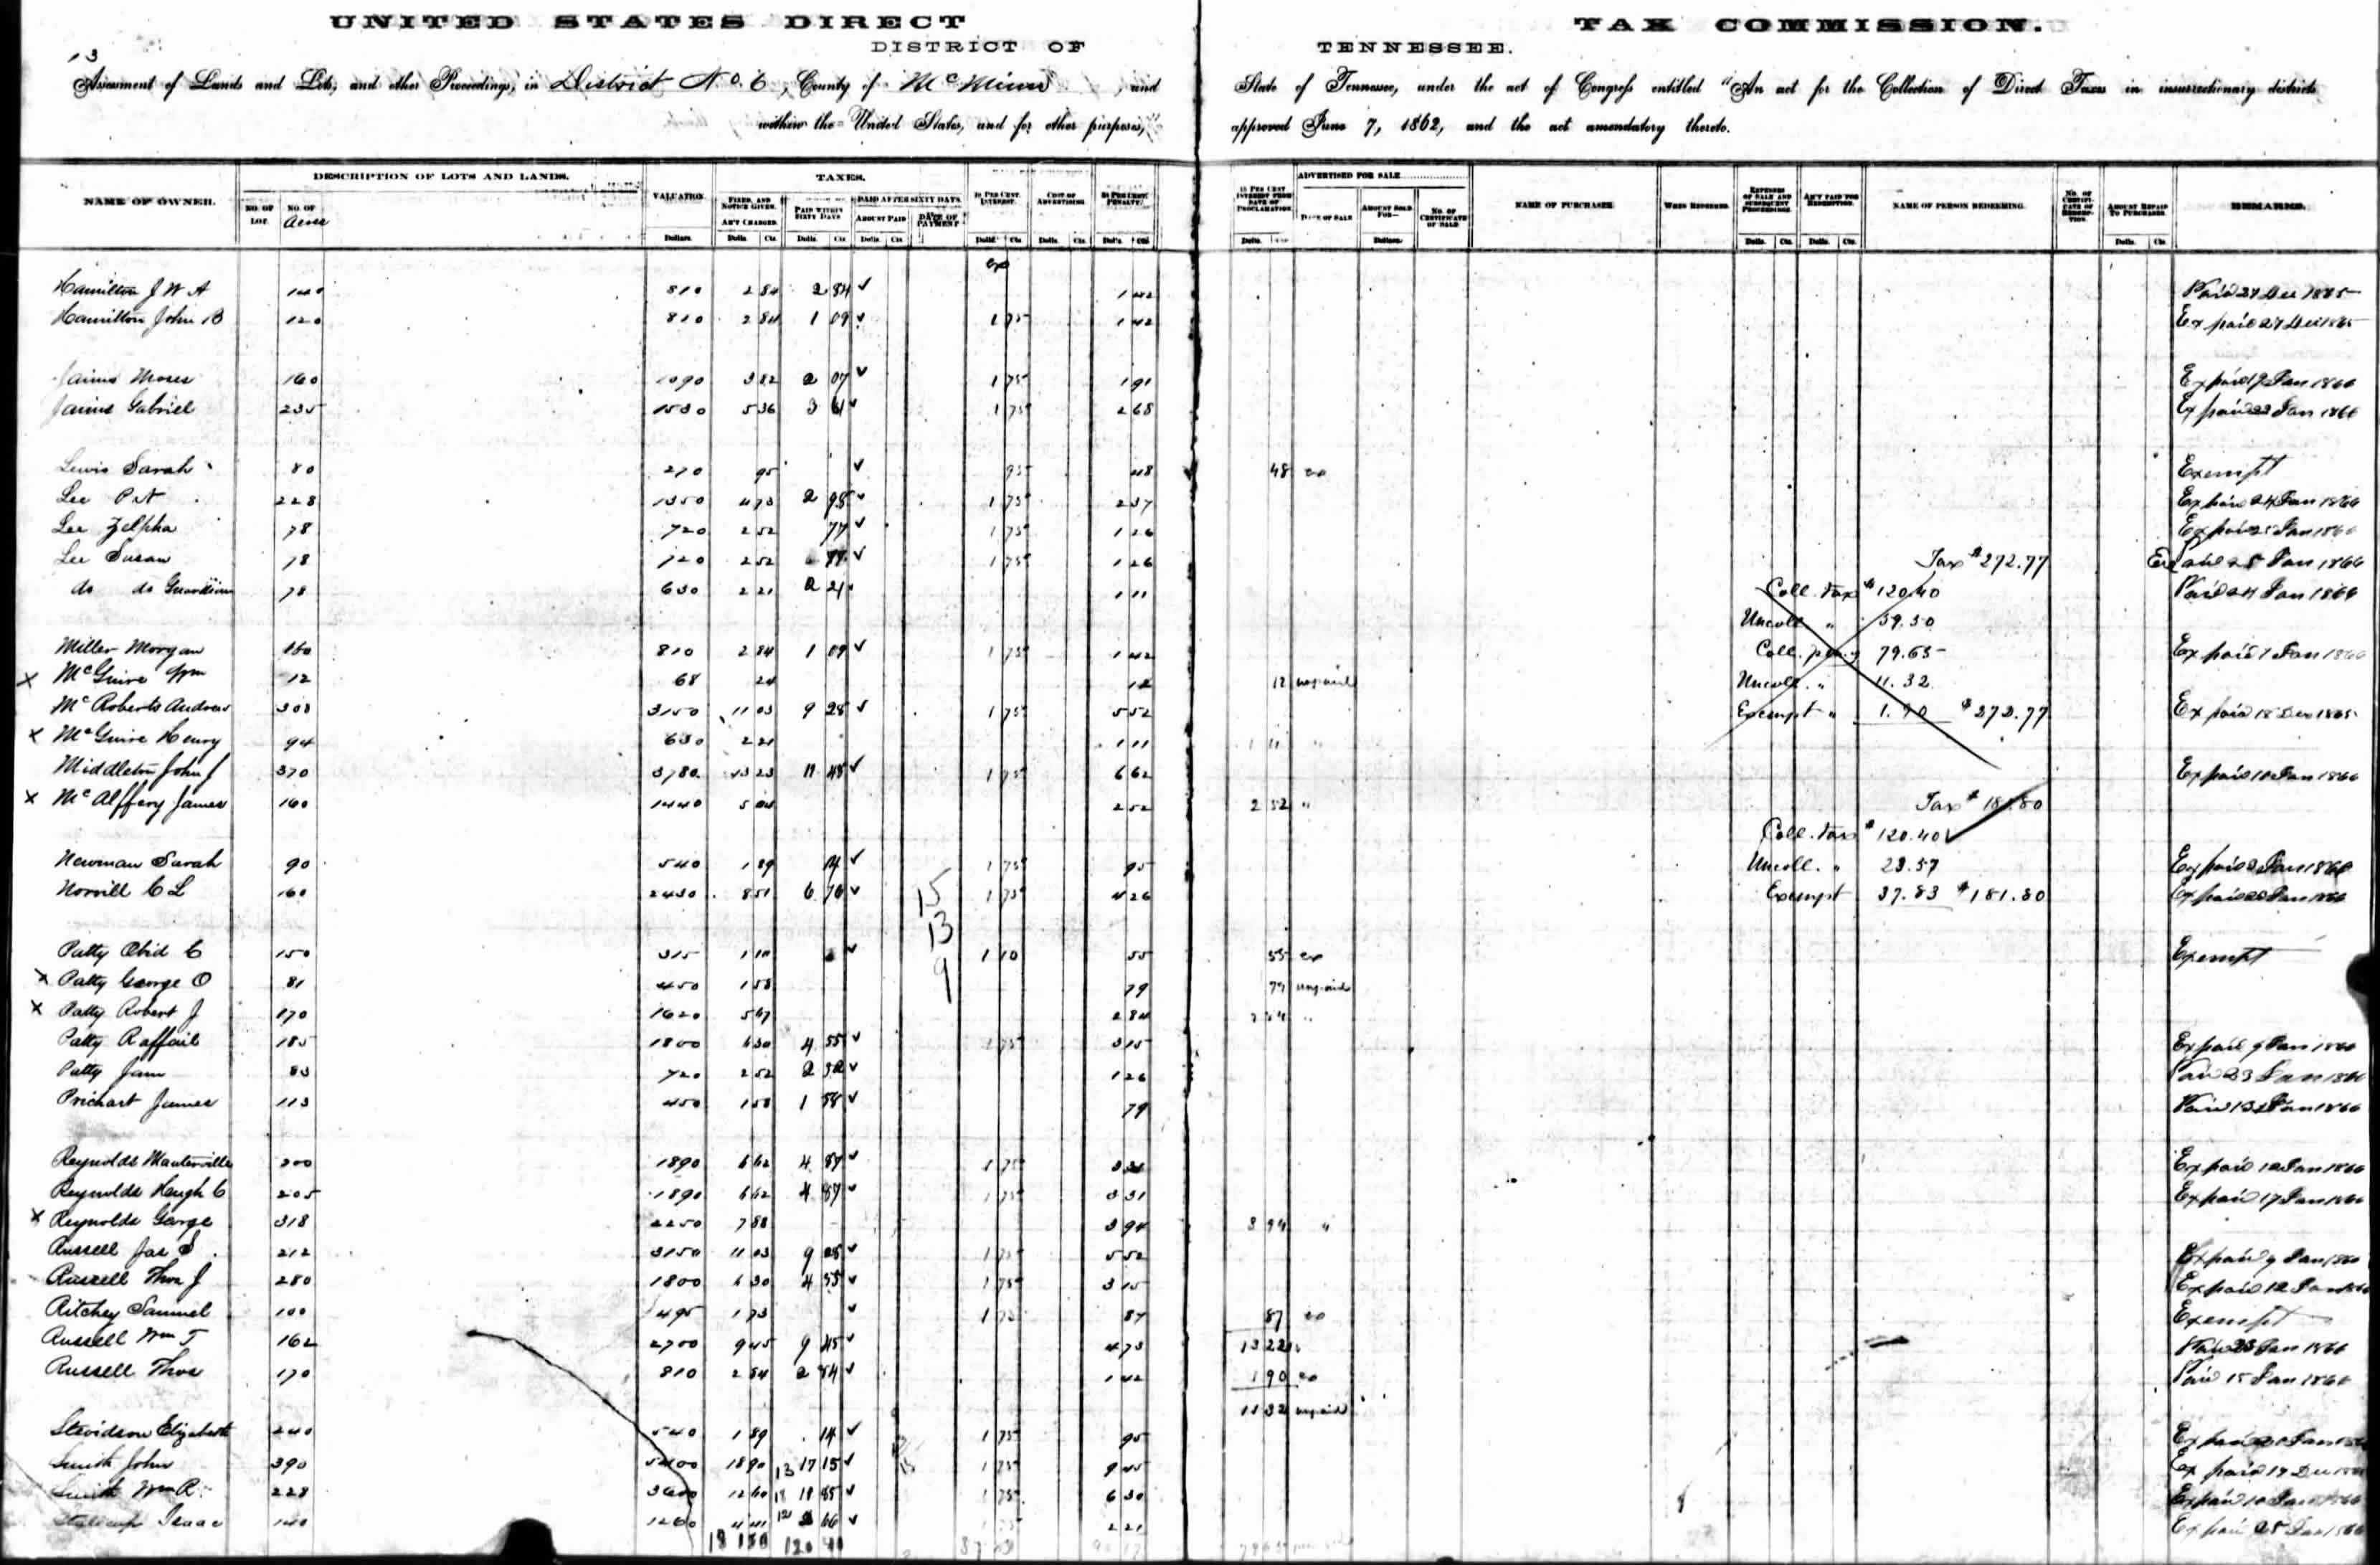 UNITED STATES DIRECT TAX COMMISSION.
DISTRICT OF TENNESSEE.
13
Assessment of Lands and Lots, and other Proceedings, in District No. 6, County of McMinn, and State of Tennessee, under the act of Congress entitled "An act for the Collection of Direct Taxes in insurrectionary districts
within the United States, and for other purposes," approved June 7, 1862, and the act amendatory thereto.
NAME OF OWNER. DESCRIPTION OF LOTS AND LANDS. VALUATION TAXES. ADVERTISED FOR SALE NAME OF PURCHASER WHEN REDEEMED. NAME OF PERSON REDEEMING. REMARKS.
NO. OF LOT. NO. OF Acres FIXED, AND NOTICE GIVEN. AM'T CHARGED. PAID WITHIN SIXTY DAYS PAID AFTER SIXTY DAYS. AMOUNT PAID DATE OF PAYMENT 10 PER CENT. INTEREST. COST OF ADVERTISING PENALTY. DATE OF SALE AMOUNT SOLD FOR— NO. OF CERTIFICATE OF SALE EXPENSES OF SALE AND SUBSEQUENT PROCEEDINGS. AM'T PAID FOR REDEMPTION. AMOUNT REPAID TO PURCHASER.
ex
Hamilton J W A 140 810 2 84 2 84 1 42 Paid 27 Dec 1865
Hamilton John B 120 810 2 84 1 09 1 75 1 42 Ex paid 27 Dec 1865
Moses 160 1090 3 82 2 07 1 75 1 91 Ex paid Jan 1866
Gabriel 235 1530 5 36 3 61 1 75 2 68 Ex paid 23 Jan 1866
Lewis Sarah 80 270 95 95 48 48 ex Exempt
Lee 228 1350 4 73 2 98 1 75 2 37 Ex paid 24 Jan 1866
Lee Zelpha 78 720 2 52 77 1 75 1 26 Ex paid 25 Jan 1866
Lee Susan 78 720 2 52 77 1 75 1 26 Tax $272.77 Ex paid 25 Jan 1866
do do Guardian 78 630 2 21 2 21 1 11 Coll. tax $120.40 Paid 24 Jan 1866
Uncoll " 59.50
Miller Morgan 160 810 2 84 1 09 1 75 1 42 Coll. pen'y 79.65 Ex paid Jan 1866
x McGuire Wm 12 68 24 12 12 unpaid Uncoll. " 11.32
McRoberts Andrew 308 3150 11 03 9 28 1 75 5 52 Exempt " 1.90 $272.77 Ex paid 18 Dec 1865
x McGuire Henry 94 630 2 21 1 11 1 11 "
Middleton John J 370 3780 13 23 11 48 1 75 6 62 Ex paid 10 Jan 1866
x McAlffery James 160 1440 5 04 2 52 2 52 " Tax $181.80
Coll. tax $120.40
Newman Sarah 90 540 1 89 14 1 75 95 Uncoll. " 23.57 Ex paid Jan 1866
Norvill C L 160 2430 8 51 6 76 1 75 4 26 Exempt 37.83 $181.80 Ex paid Jan 1866
15
13
9
Patty Obid C 150 315 1 10 1 10 55 55 ex Exempt
x Patty George O 81 450 1 58 79 79 unpaid
x Patty Robert J 170 1620 5 67 2 84 2 84 "
Patty Raffail 185 1800 6 30 4 55 1 75 3 15 Ex paid 9 Jan 1866
Patty Jane 83 720 2 52 2 52 1 26 Paid 23 Jan 1866
Prichart James 113 450 1 58 1 58 79 Paid 13 Jan 1866
Reynolds 200 1890 6 62 4 87 1 75 3 31 Ex paid 12 Jan 1866
Reynolds Haugh C 205 1890 6 62 4 87 1 75 3 31 Ex paid 17 Jan 1866
x Reynolds George 318 2250 7 88 3 94 3 94 "
Russell Jas S 212 3150 11 03 9 28 1 75 5 52 Ex paid 9 Jan 1866
Russell Thos J 280 1800 6 30 4 55 1 75 3 15 Ex paid 12 Jan 1866
Ritchey Samuel 100 495 1 73 1 73 87 87 ex Exempt
Russell Wm T 162 2700 9 45 9 45 4 73 13 22 Paid 23 Jan 1866
Russell Thos 170 810 2 84 2 84 1 42 1 90 ex Paid 15 Jan 1866
11 32 unpaid
Stevidson Elizabeth 240 540 1 89 14 1 75 95 Ex paid Jan
Smith John 390 5400 18 90 17 15 1 75 9 45 Ex paid 19 Dec
Smith Wm R. 228 3600 12 60 10 85 1 75 6 30 Ex paid 10 Jan 1866
Isaac 140 1260 4 41 2 66 1 75 2 21 Ex paid 25 Jan 1866
120 40